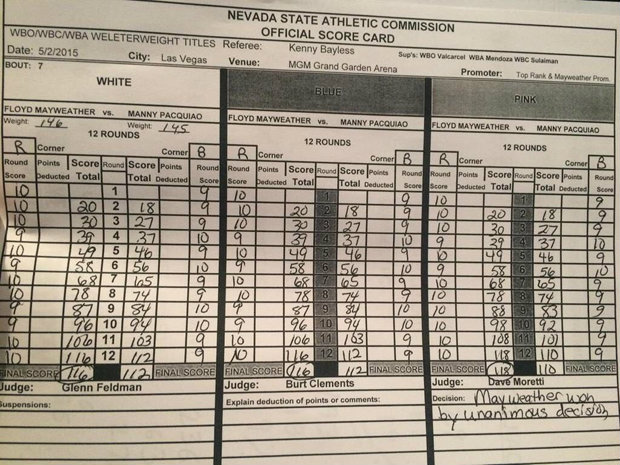 NEVADA STATE ATHLETIC COMMISSION
OFFICIAL SCORE CARD
WBO/WBC/WBA WELTERWEIGHT TITLES Referee: Kenny Bayless Sup's: WBO Valcarcel WBA Mendoza WBC Sulaiman
Date: 5/2/2015 City: Las Vegas Venue: MGM Grand Garden Arena Promoter: Top Rank & Mayweather Prom.
BOUT: 7
WHITE BLUE PINK
FLOYD MAYWEATHER vs. MANNY PACQUIAO FLOYD MAYWEATHER vs. MANNY PACQUIAO FLOYD MAYWEATHER vs. MANNY PACQUIAO
Weight: 146 Weight: 145
12 ROUNDS 12 ROUNDS 12 ROUNDS
R Corner Corner B R Corner Corner B R Corner Corner B
Round Score Points Deducted Score Total Round Score Total Points Deducted Round Score Round Score Points Deducted Score Total Round Score Total Points Deducted Round Score Round Score Points Deducted Score Total Round Score Total Points Deducted Round Score
10 1 9 10 1 9 10 1 9
10 20 2 18 9 10 20 2 18 9 10 20 2 18 9
10 30 3 27 9 10 30 3 27 9 10 30 3 27 9
9 39 4 37 10 9 39 4 37 10 9 39 4 37 10
10 49 5 46 9 10 49 5 46 9 10 49 5 46 9
9 58 6 56 10 9 58 6 56 10 9 58 6 56 10
10 68 7 65 9 10 68 7 65 9 10 68 7 65 9
10 78 8 74 9 10 78 8 74 9 10 78 8 74 9
9 87 9 84 10 9 87 9 84 10 10 88 9 83 9
9 96 10 94 10 9 96 10 94 10 10 98 10 92 9
10 106 11 103 9 10 106 11 103 9 10 108 11 101 9
10 116 12 112 9 10 116 12 112 9 10 118 12 110 9
FINAL SCORE 116 112 FINAL SCORE FINAL SCORE 116 112 FINAL SCORE FINAL SCORE 118 110 FINAL SCORE
Judge: Glenn Feldman Judge: Burt Clements Judge: Dave Moretti
Suspensions: Explain deduction of points or comments: Decision: Mayweather won
by unanimous decision